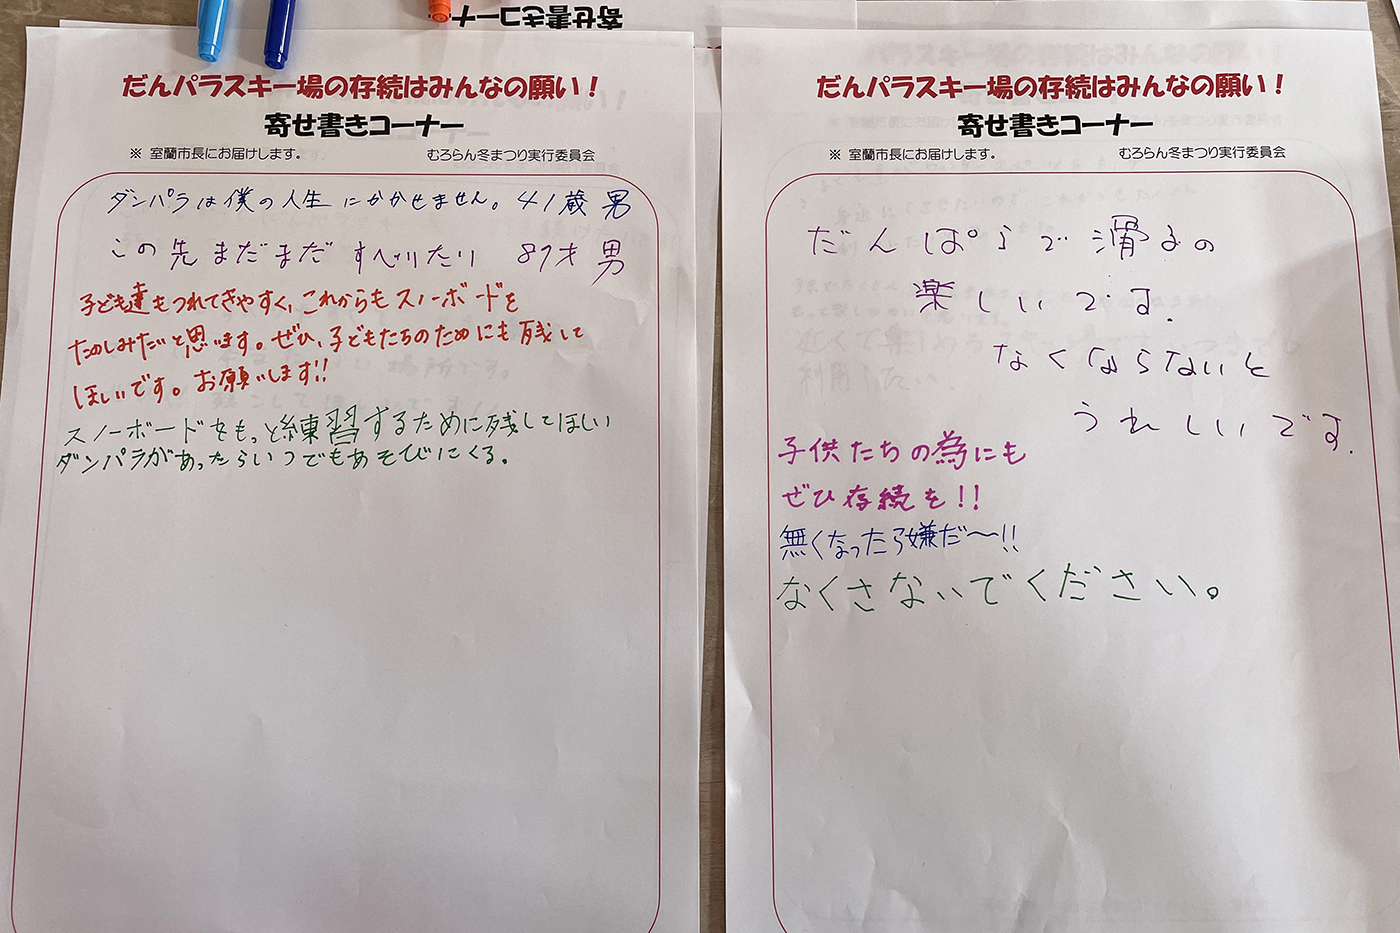 寄せ書きコーナー
だんパラスキー場の存続はみんなの願い！
寄せ書きコーナー
※ 室蘭市長にお届けします。 むろらん冬まつり実行委員会
ダンパラは僕の人生にかかせません。41歳 男
この先まだまだすべりたり 87才 男
子ども達もつれてきやすく、これからもスノーボードを
たのしみたいと思います。ぜひ、子どもたちのためにも残して
ほしいです。お願いします!!
スノーボードをもっと練習するために残してほしい
ダンパラがあったらいつでもあそびにくる。
だんパラスキー場の存続はみんなの願い！
寄せ書きコーナー
※ 室蘭市長にお届けします。 むろらん冬まつり実行委員会
だんぱらで滑るの
楽しいです.
なくならないと
うれしいです.
子供たちの為にも
ぜひ存続を!!
無くなったら嫌だ〜!!
なくさないでください。